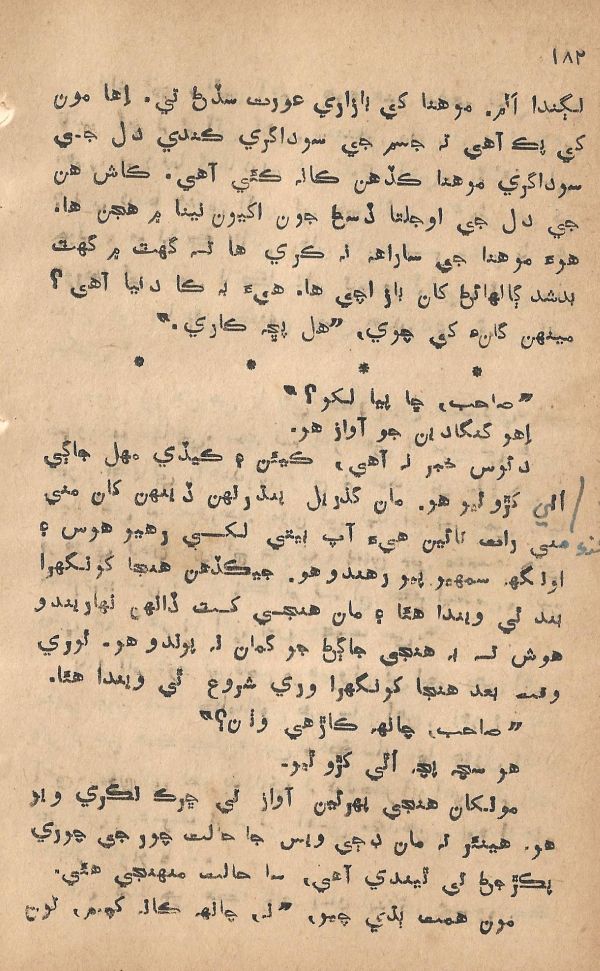 ١٨٢
لڳندا آهن. موهنا کي بازاري عورت سڏڻ ٿي. اِها مون
کي پڪ آهي ته جسم جي سوداگري ڪندي دل جي
سوداگري موهنا ڪڏهن ڪانه ڪئي آهي. ڪاش هن
جي دل جي اوجلتا ڏسڻ جون اکيون نينا ۾ هجن ها.
هوءَ موهنا جي ساراهه نه ڪري ها ته گهٽ ۾ گهٽ
بدشد ڳالهائڻ کان باز اچي ها. هيءَ به ڪا دنيا آهي؟
مينهن گانءِ کي چوي، ”هل پڇ ڪاري.“
* * * *
”صاحب، ڇا پيا لکو؟“
اِهو گنگادين جو آواز هو.
دئوس خبر نه آهي، ڪيئن ۽ ڪيڏي مهل جاڳي
اُٿي کڙو ٿيو هو. مان گذريل پندرنهن ڏينهن کان مني
مني رات تائين هيءَ آپ بيتي لکي رهيو هوس ۽
اونگهه سمهيو پيو رهندو هو. جيڪڏهن هنجا کونگهرا
بند ٿي ويندا هئا ۽ مان هنجي کٽ ڏانهن نهاريندو
هوس ته به هنجي جاڳڻ جو گمان نه پوندو هو. ٿوري
وقت بعد هنجا کونگهرا وري شروع ٿي ويندا هئا.
”صاحب، چانهه ڪاڙهي وٺان؟“
هو سچ پچ اُٿي کڙو ٿيو.
مونکان هنجي پهرئين آواز تي ڇرڪ نڪري ويو
هو. هينئر ته مان ڊڄي ويس جا حالت چور جي چوري
پڪڙجڻ تي ٿيندي آهي، سا حالت منهنجي هئي.
مون همت ٻڌي چيو، ”نه، چانهه ڪانه کپيم، تون